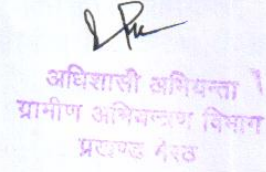 अधिशासी अभियन्ता
ग्रामीण अभियन्त्रण विभाग
प्रखण्ड